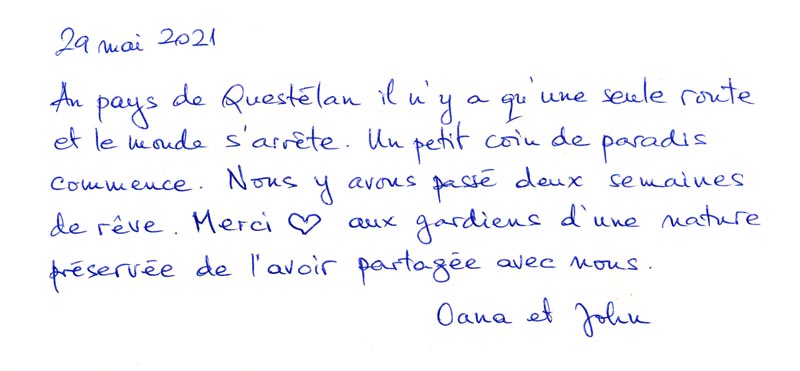 29 mai 2021
Au pays de Questélan il n'y a qu'une seule route
et le monde s'arrête. Un petit coin de paradis
commence. Nous y avons passé deux semaines
de rêve. Merci ♡ aux gardiens d'une nature
préservée de l'avoir partagée avec nous.
Oana et John